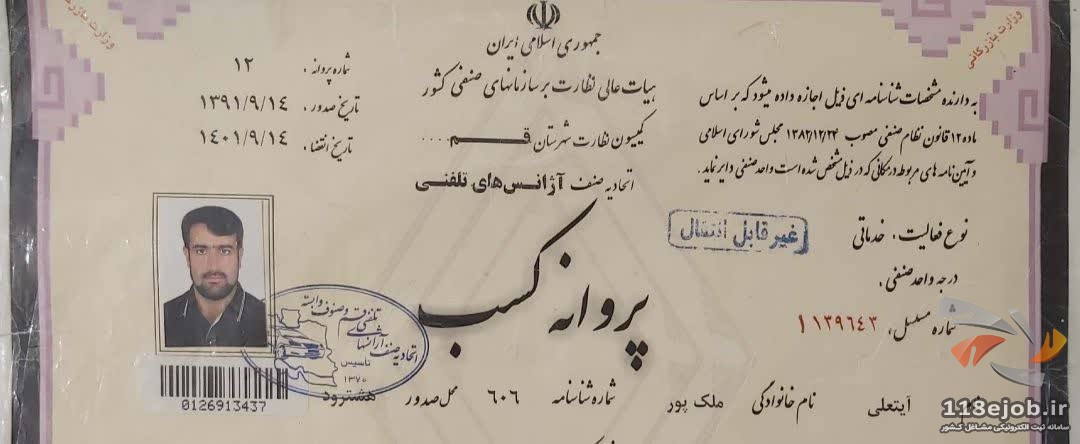 جمهوری اسلامی ایران
هیات عالی نظارت بر سازمانهای صنفی کشور
کمیسیون نظارت شهرستان قم
اتحادیه صنف آژانس‌های تلفنی
شماره پروانه : ۱۲
تاریخ صدور : ۱۳۹۱/۹/۱۴
تاریخ انقضاء : ۱۴۰۱/۹/۱۴
وزارت بازرگانی
وزارت بازرگانی
به دارنده مشخصات شناسنامه ای ذیل اجازه داده میشود که بر اساس
ماده ۱۲ قانون نظام صنفی مصوب ۱۳۸۲/۱۲/۲۴ مجلس شورای اسلامی
و آیین نامه های مربوطه در مکانی که در ذیل مشخص شده است واحد صنفی دایر نماید .
نوع فعالیت : خدماتی
درجه واحد صنفی :
شماره مسلسل : ۱۱۳۹۶۴۳
غیر قابل انتقال
پروانه کسب
اتحادیه صنف آژانسهای تلفنی قم و صنوف وابسته
تاسیس
۱۳۷۰
0126913437
نام آیتعلی نام خانوادگی ملک پور شماره شناسنامه ۶۰۶ محل صدور هشترود
118ejob.ir
سامانه ثبت الکترونیکی مشاغل کشور